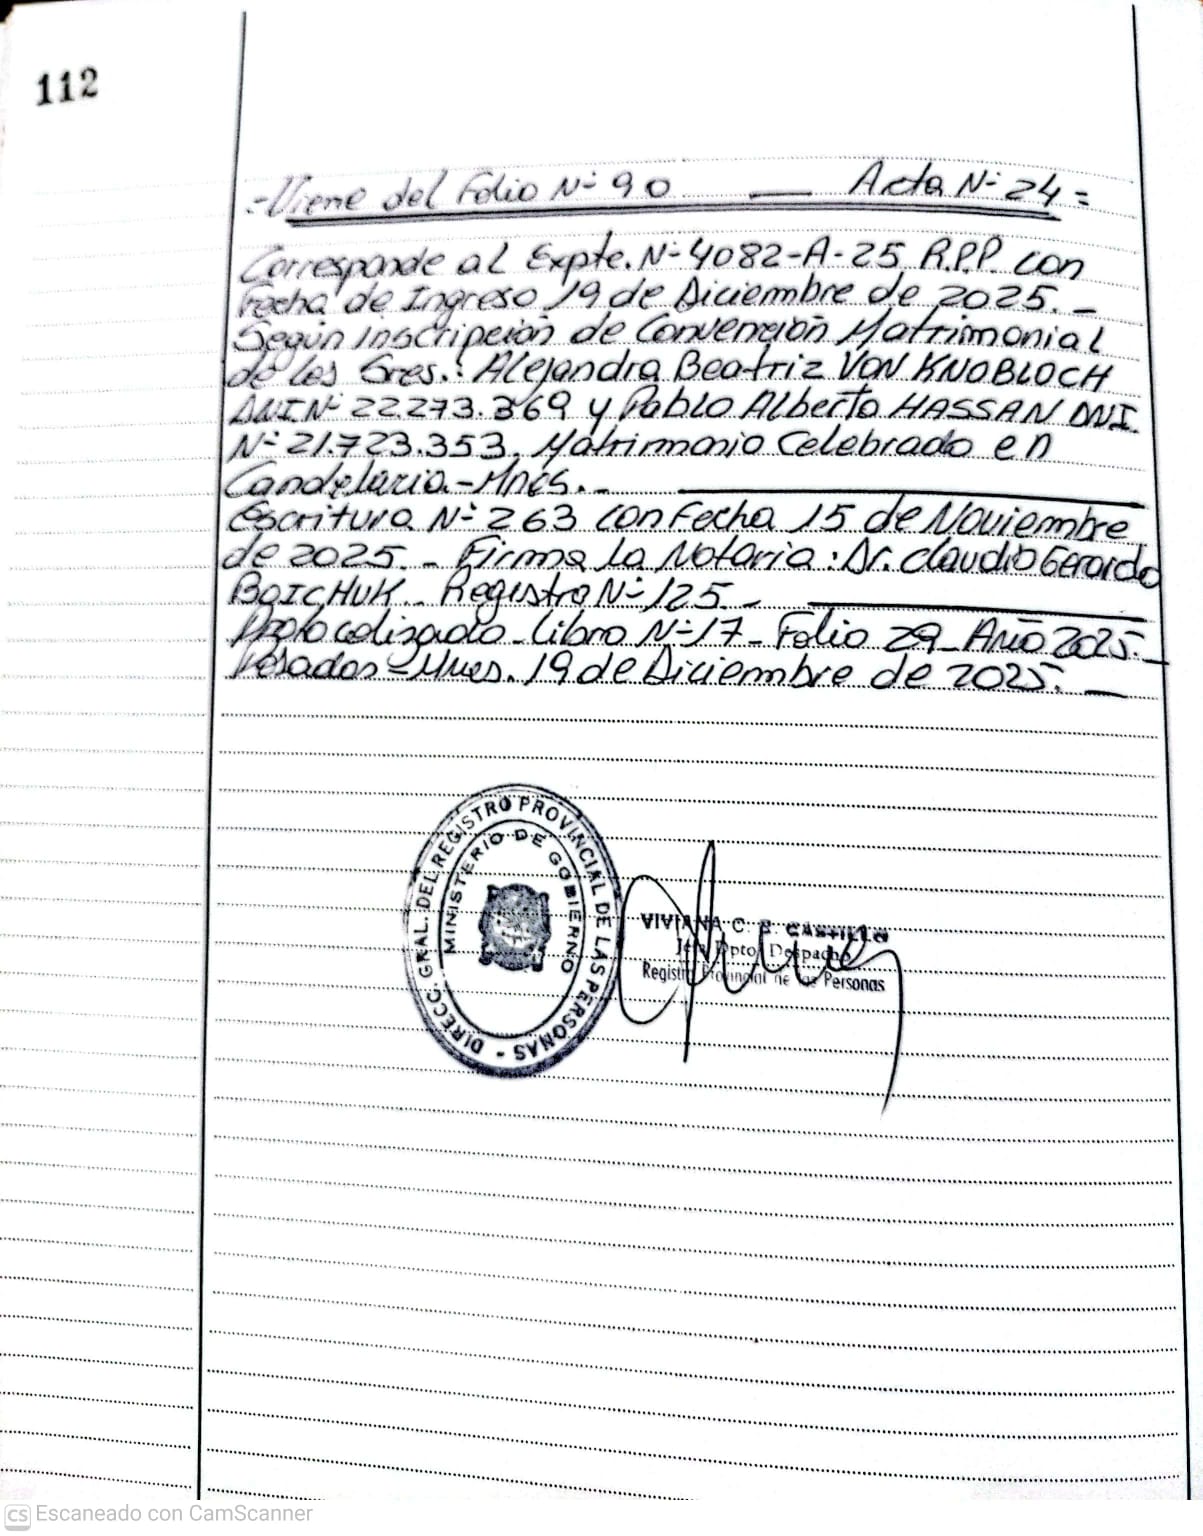 112
=Viene del Folio Nº 90 — Acta Nº 24=
Corresponde al Expte. Nº 4082-A-25 R.P.P. con
Fecha de Ingreso 19 de Diciembre de 2025._
Según Inscripción de Convención Matrimonial
de los Sres.: Alejandra Beatriz VON KNOBLOCH
DNI Nº 22.273.369 y Pablo Alberto HASSAN DNI.
Nº 21.723.353. Matrimonio Celebrado en
Candelaria.-Mnes._
Escritura Nº 263 con Fecha 15 de Noviembre
de 2025._ Firma la Notaria: Dr. Claudio Gerardo
BOICHUK._ Registro Nº 125._
Protocolizado_Libro Nº 17_Folio 29_Año 2025._
Posadas-Mnes. 19 de Diciembre de 2025.—
DIRECC. GRAL. DEL REGISTRO PROVINCIAL DE LAS PERSONAS -
MINISTERIO DE GOBIERNO
VIVIANA C. B. CASTILLO
Jefa Dpto. Despacho
Registro Provincial de las Personas
CS Escaneado con CamScanner